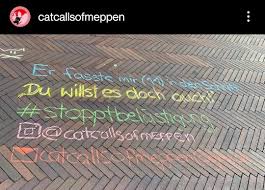 catcallsofmeppen
Er fasste mir (11) in der Schule
Du willst es doch auch!
#stopptbelästigung
@catcallsofmeppen
catcallsofmeppen